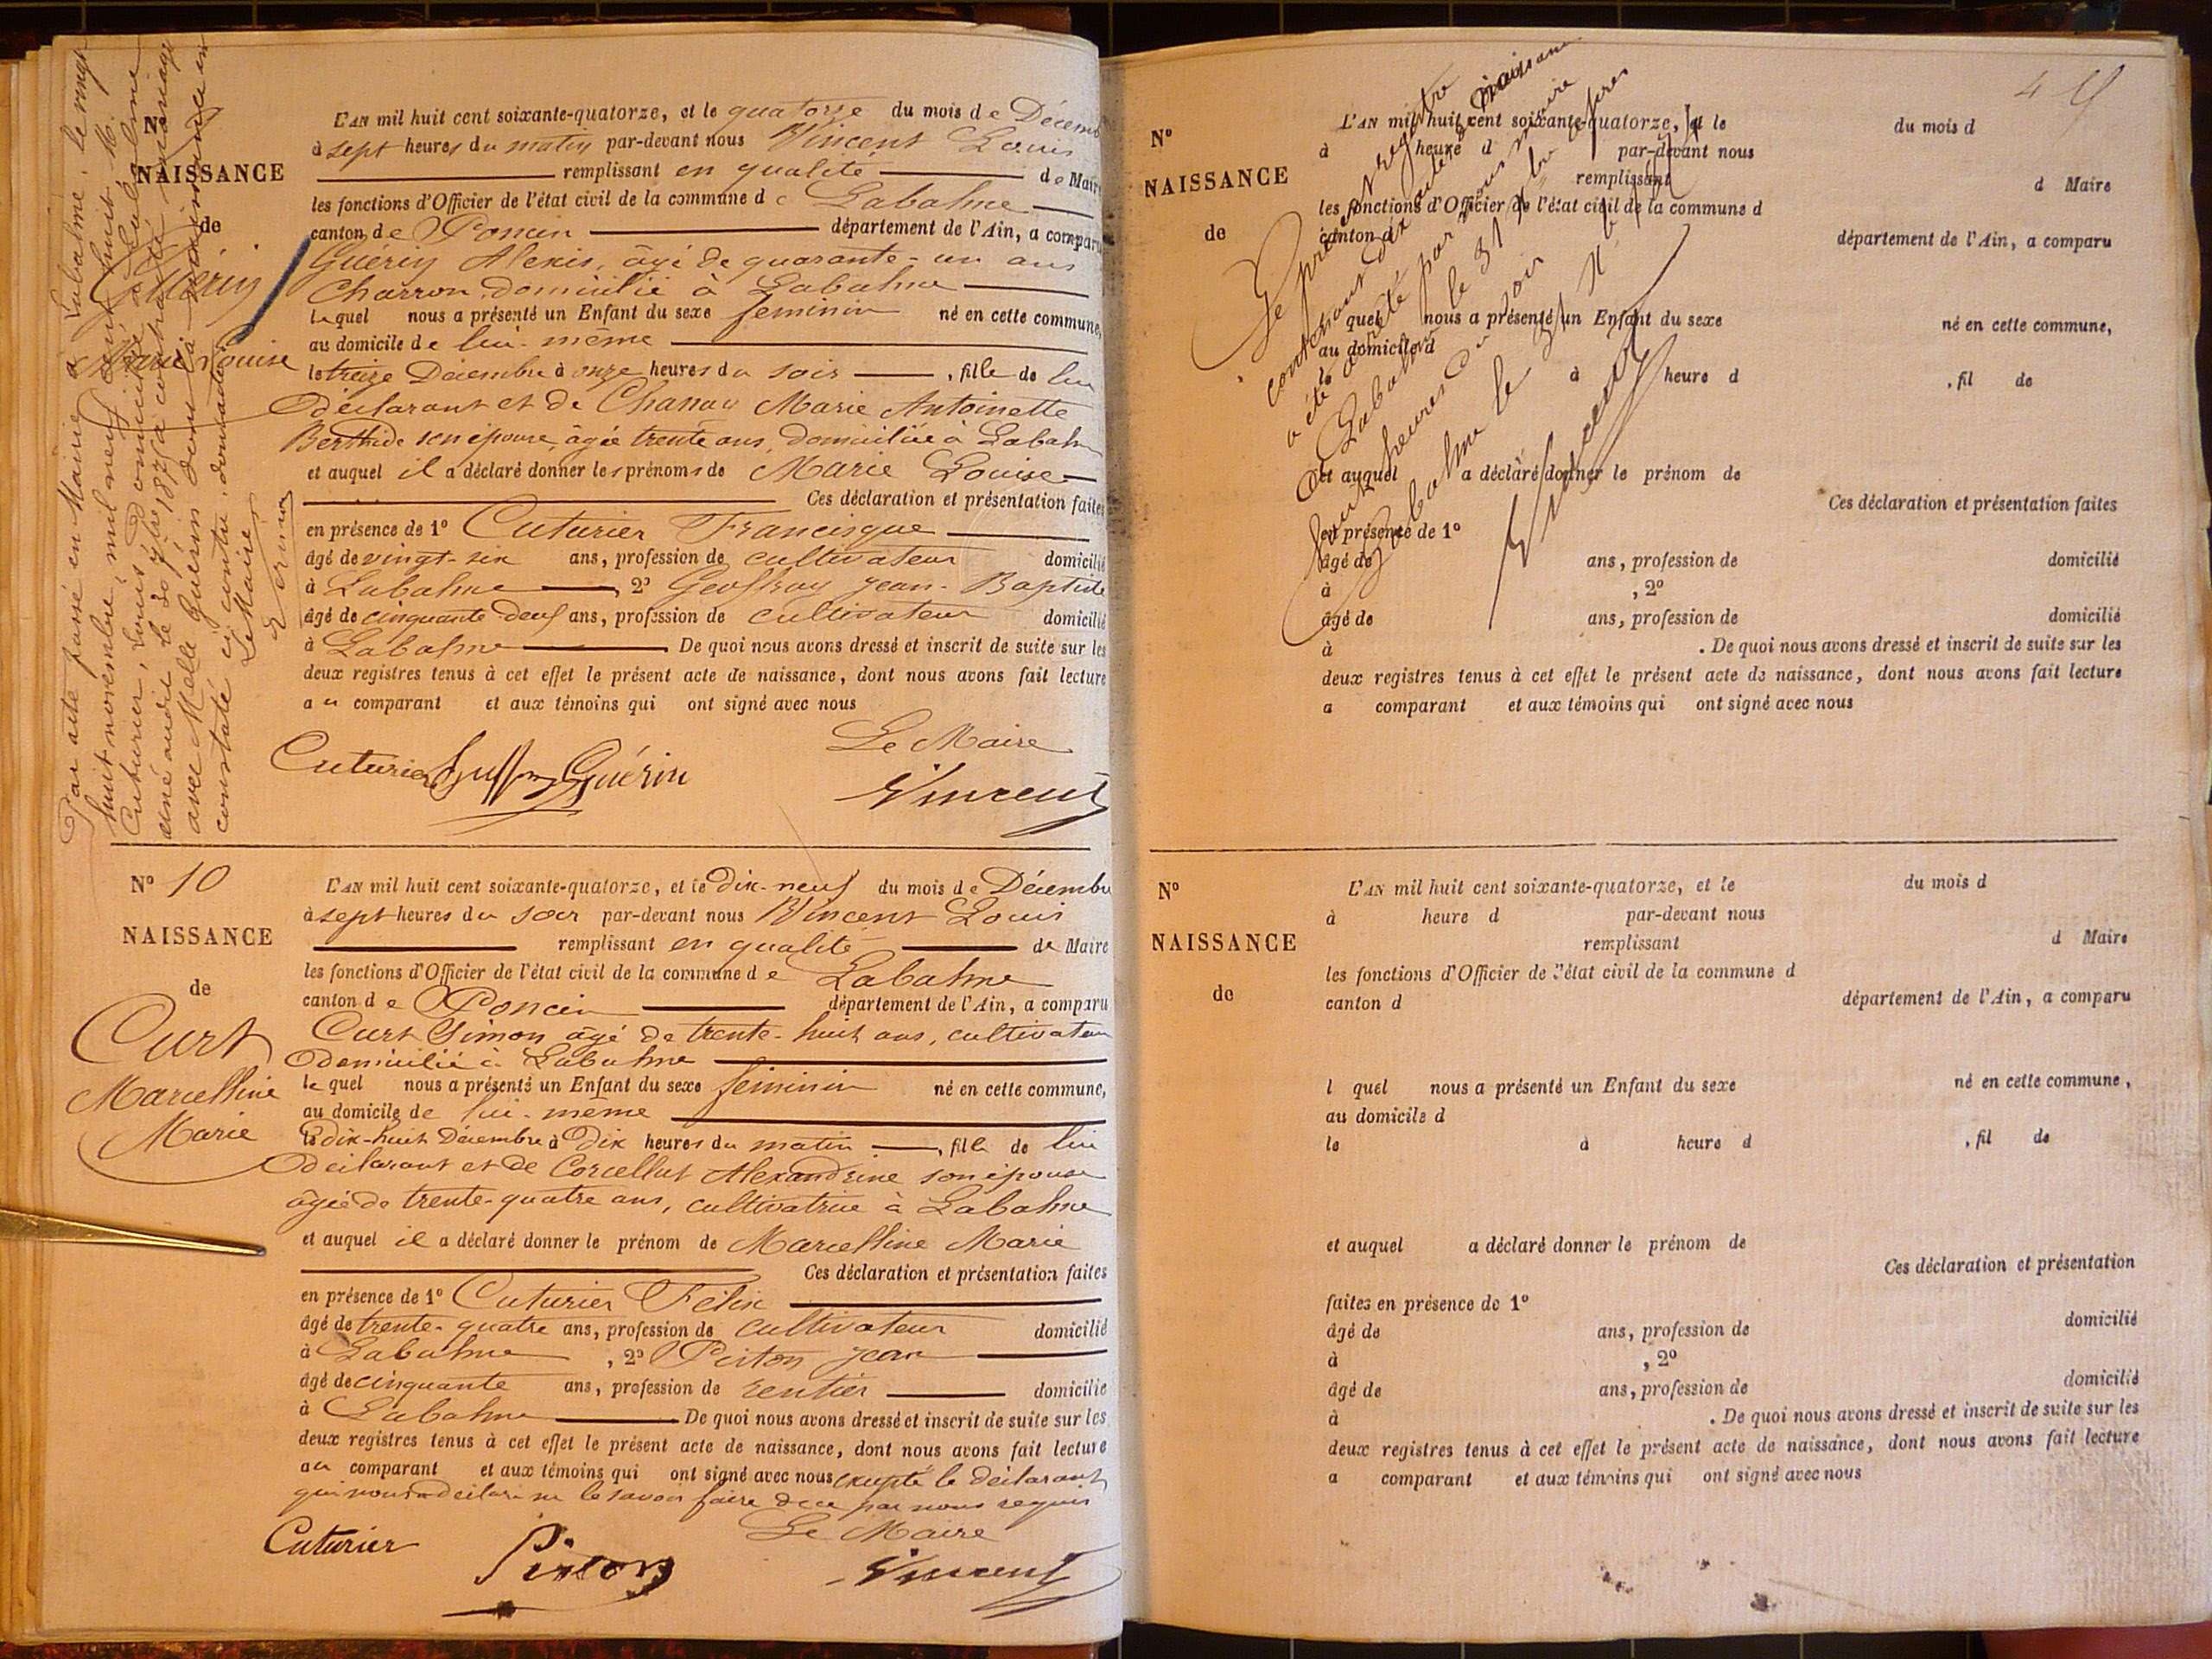 Par acte passé en Mairie à Labalme, le vingt
huit novembre, mil neuf cent huit, M.
Cuturier, Louis, domicilié à Labalme
avec Melle Guérin dont la
constaté ci-contre.
Le Maire,
N°
NAISSANCE
de
Guérin
Marie Louise
L'AN mil huit cent soixante-quatorze, et le quatorze du mois de Décemb
à sept heures du matin par-devant nous Vincent Louis
remplissant en qualité de Maire
les fonctions d'Officier de l'état civil de la commune de Labalme
canton de Poncin département de l'Ain, a comparu
Guérin Alexis, âgé de quarante-un ans
Charron domicilié à Labalme
lequel nous a présenté un Enfant du sexe feminin né en cette commune,
au domicile de lui-même
le treize Décembre à onze heures du soir, fille de lui
déclarant et de Chanav Marie Antoinette
son épouse, âgée trente ans, domiciliée à Labalm
et auquel il a déclaré donner les prénoms de Marie Louise
Ces déclaration et présentation faites
en présence de 1° Cuturier Francisque
âgé de vingt-six ans, profession de cultivateur domicilié
à Labalme, 2° Geoffray Jean-Baptiste
âgé de cinquante-deux ans, profession de cultivateur domicilié
à Labalme De quoi nous avons dressé et inscrit de suite sur les
deux registres tenus à cet effet le présent acte de naissance, dont nous avons fait lecture
au comparant et aux témoins qui ont signé avec nous
Le Maire
Cuturier Guérin Vincent
N° 10
NAISSANCE
de
Curt
Marcelline
Marie
L'AN mil huit cent soixante-quatorze, et le dix-neuf du mois de Décembre
à sept heures du soir par-devant nous Vincent Louis
remplissant en qualité de Maire
les fonctions d'Officier de l'état civil de la commune de Labalme
canton de Poncin département de l'Ain, a comparu
Curt Simon âgé de trente-huit ans, cultivateur
domicilié à Labalme
lequel nous a présenté un Enfant du sexe féminin né en cette commune,
au domicile de lui-même
le dix-huit Décembre à dix heures du matin, fille de lui
déclarant et de Corcellut Alexandrine son épouse
âgée de trente-quatre ans, cultivatrice à Labalme
et auquel il a déclaré donner le prénom de Marcelline Marie
Ces déclaration et présentation faites
en présence de 1° Cuturier Félix
âgé de trente-quatre ans, profession de cultivateur domicilié
à Labalme, 2° Piston Jean
âgé de cinquante ans, profession de rentier domicilié
à Labalme De quoi nous avons dressé et inscrit de suite sur les
deux registres tenus à cet effet le présent acte de naissance, dont nous avons fait lecture
au comparant et aux témoins qui ont signé avec nous excepté le déclarant
qui nous a déclaré ne le savoir faire de ce par nous requis
Le Maire
Cuturier Piston Vincent
N°
NAISSANCE
de
L'AN mil huit cent soixante-quatorze, et le du mois d
à heure d par-devant nous
remplissant d Maire
les fonctions d'Officier de l'état civil de la commune d
canton d département de l'Ain, a comparu
l quel nous a présenté un Enfant du sexe né en cette commune,
au domicile d
le à heure d, fil de
et auquel a déclaré donner le prénom de
Ces déclaration et présentation faites
en présence de 1°
âgé de ans, profession de domicilié
à, 2°
âgé de ans, profession de domicilié
à. De quoi nous avons dressé et inscrit de suite sur les
deux registres tenus à cet effet le présent acte de naissance, dont nous avons fait lecture
a comparant et aux témoins qui ont signé avec nous
Le présent registre
contenant naissan
a été arrêté par nous maire
Labalme le 31
heures du soir
Labalme le 31
Vincent
N°
NAISSANCE
de
L'AN mil huit cent soixante-quatorze, et le du mois d
à heure d par-devant nous
remplissant d Maire
les fonctions d'Officier de l'état civil de la commune d
canton d département de l'Ain, a comparu
l quel nous a présenté un Enfant du sexe né en cette commune,
au domicile d
le à heure d, fil de
et auquel a déclaré donner le prénom de
Ces déclaration et présentation
faites en présence de 1°
âgé de ans, profession de domicilié
à, 2°
âgé de ans, profession de domicilié
à. De quoi nous avons dressé et inscrit de suite sur les
deux registres tenus à cet effet le présent acte de naissance, dont nous avons fait lecture
a comparant et aux témoins qui ont signé avec nous